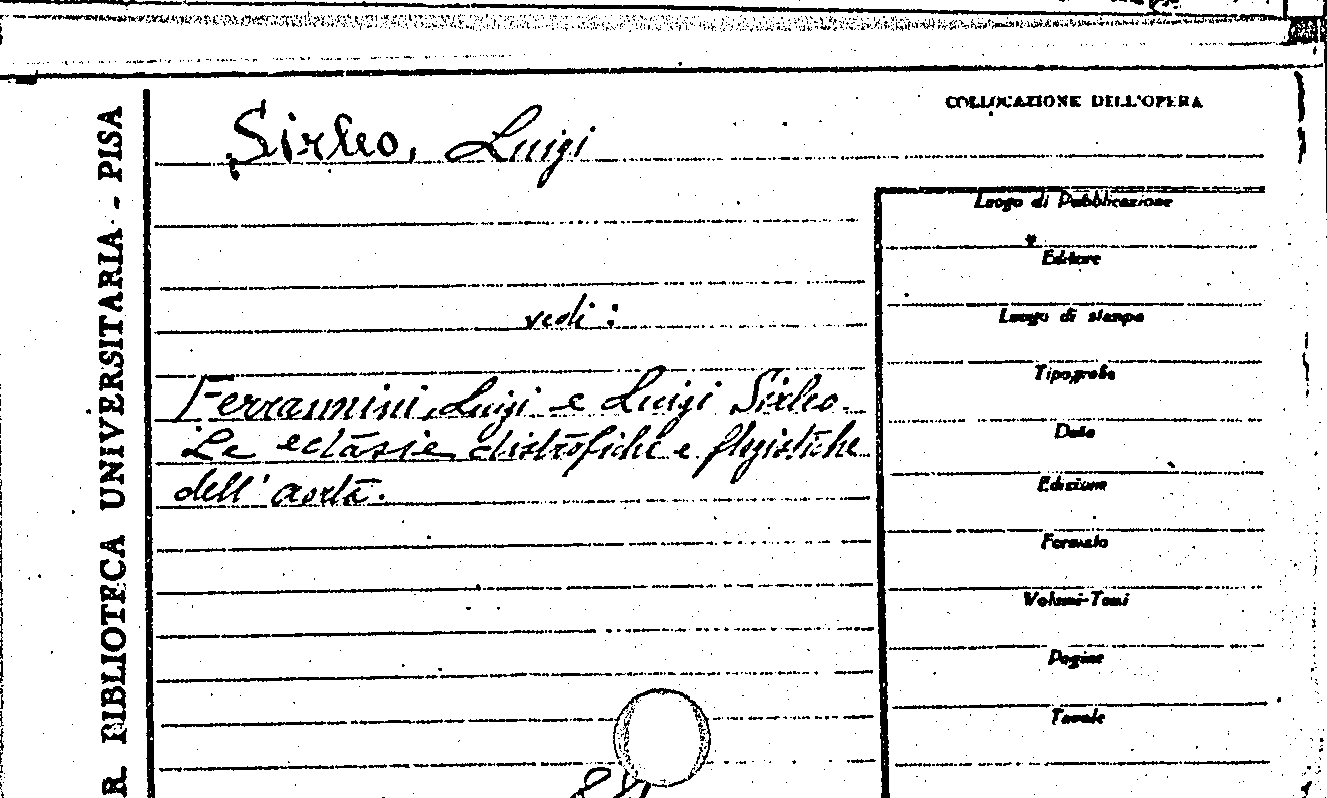 R. BIBLIOTECA UNIVERSITARIA - PISA
COLLOCAZIONE DELL'OPERA
Sirleo, Luigi
vedi :
Ferrannini, Luigi e Luigi Sirleo
Le ectasie distrofiche e flogistiche
dell'aorta.
Luogo di Pubblicazione
Editore
Luogo di stampa
Tipografia
Data
Edizione
Formato
Volumi-Tomi
Pagine
Tavole